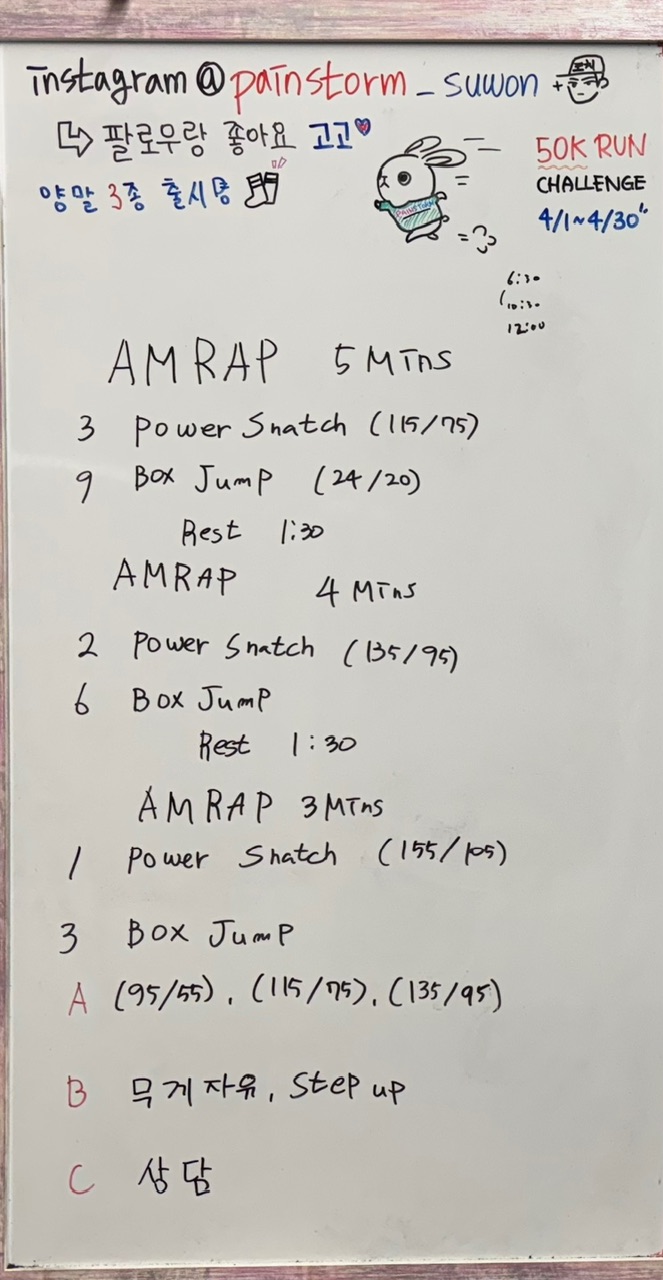 instagram @ painstorm _ suwon
팔로우랑 좋아요 고고
양말 3종 출시용
PAINSTORM
50K RUN
CHALLENGE
4/1~4/30
6:30
10:30
12:00
AMRAP 5 Mins
3 Power Snatch (115/75)
9 Box Jump (24/20)
Rest 1:30
AMRAP 4 Mins
2 Power Snatch (135/95)
6 Box Jump
Rest 1:30
AMRAP 3 Mins
1 Power Snatch (155/105)
3 Box Jump
A (95/55), (115/75), (135/95)
B 무게자유, Step up
C 상담